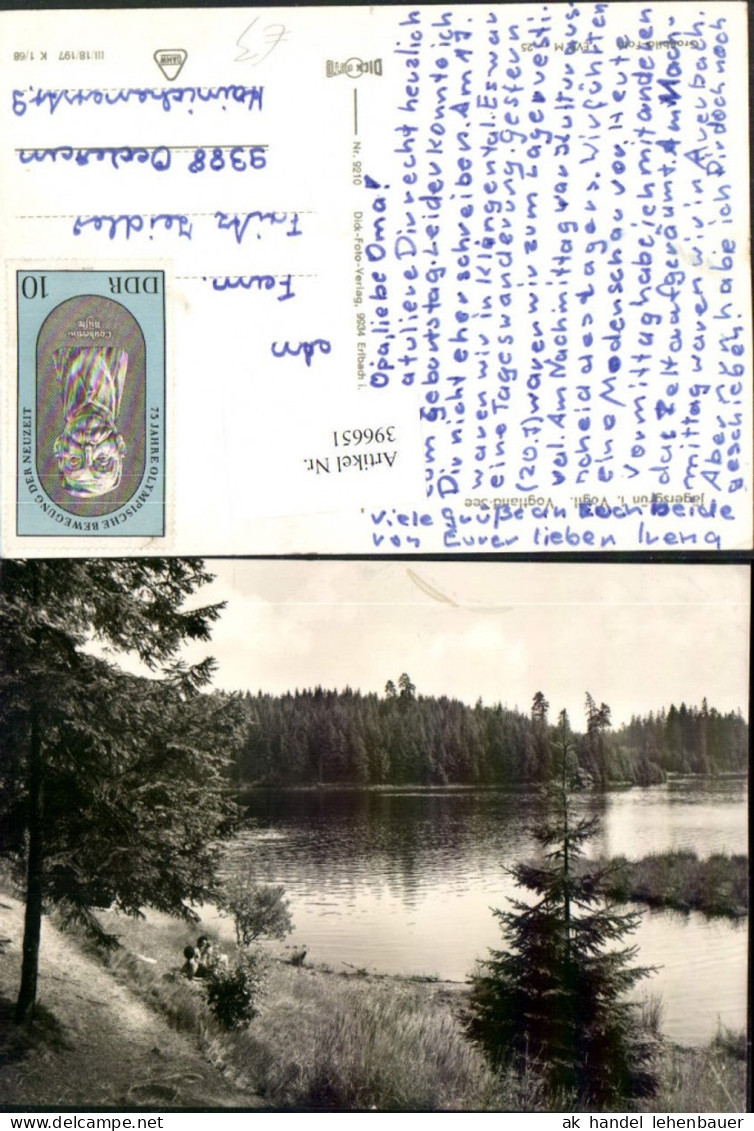 Opa, liebe Oma!
atuliere Dir recht herzlich
zum Geburtstag. Leider konnte ich
Dir nicht eher schreiben. Am 19.
waren wir in Klingental. Es war
eine Tageswanderung. Gestern
(20.7) waren wir zum Lagervesti-
val. Am Nachmittag war Kulturaus-
scheid des Lagers. Wir führten
eine Modenschau vor. Heute
Vormittag habe ich mit anderen
das Zelt aufgeräumt. Am Nach-
mittag waren wir in Auerbach.
Aber nun habe ich Dir doch noch
geschrieben.
Viele Grüße an Euch Beide
von Eurer lieben Irena
Jägersgrün i. Vogtl. Vogtland-See
Artikel Nr.
396651
DDR 10
75 JAHRE OLYMPISCHE BEWEGUNG DER NEUZEIT
Coubertin
Büste
an
Fam.
Fritz Zeidler
9388 Oederan
Hainichenerstr. 9
Nr. 9210 Dick-Foto-Verlag, 9934 Erlbach i.
DICK FOTO
Großbild-Foto EVP M -,25
DAHW
III/18/197 K 1/68
ak handel lehenbauer